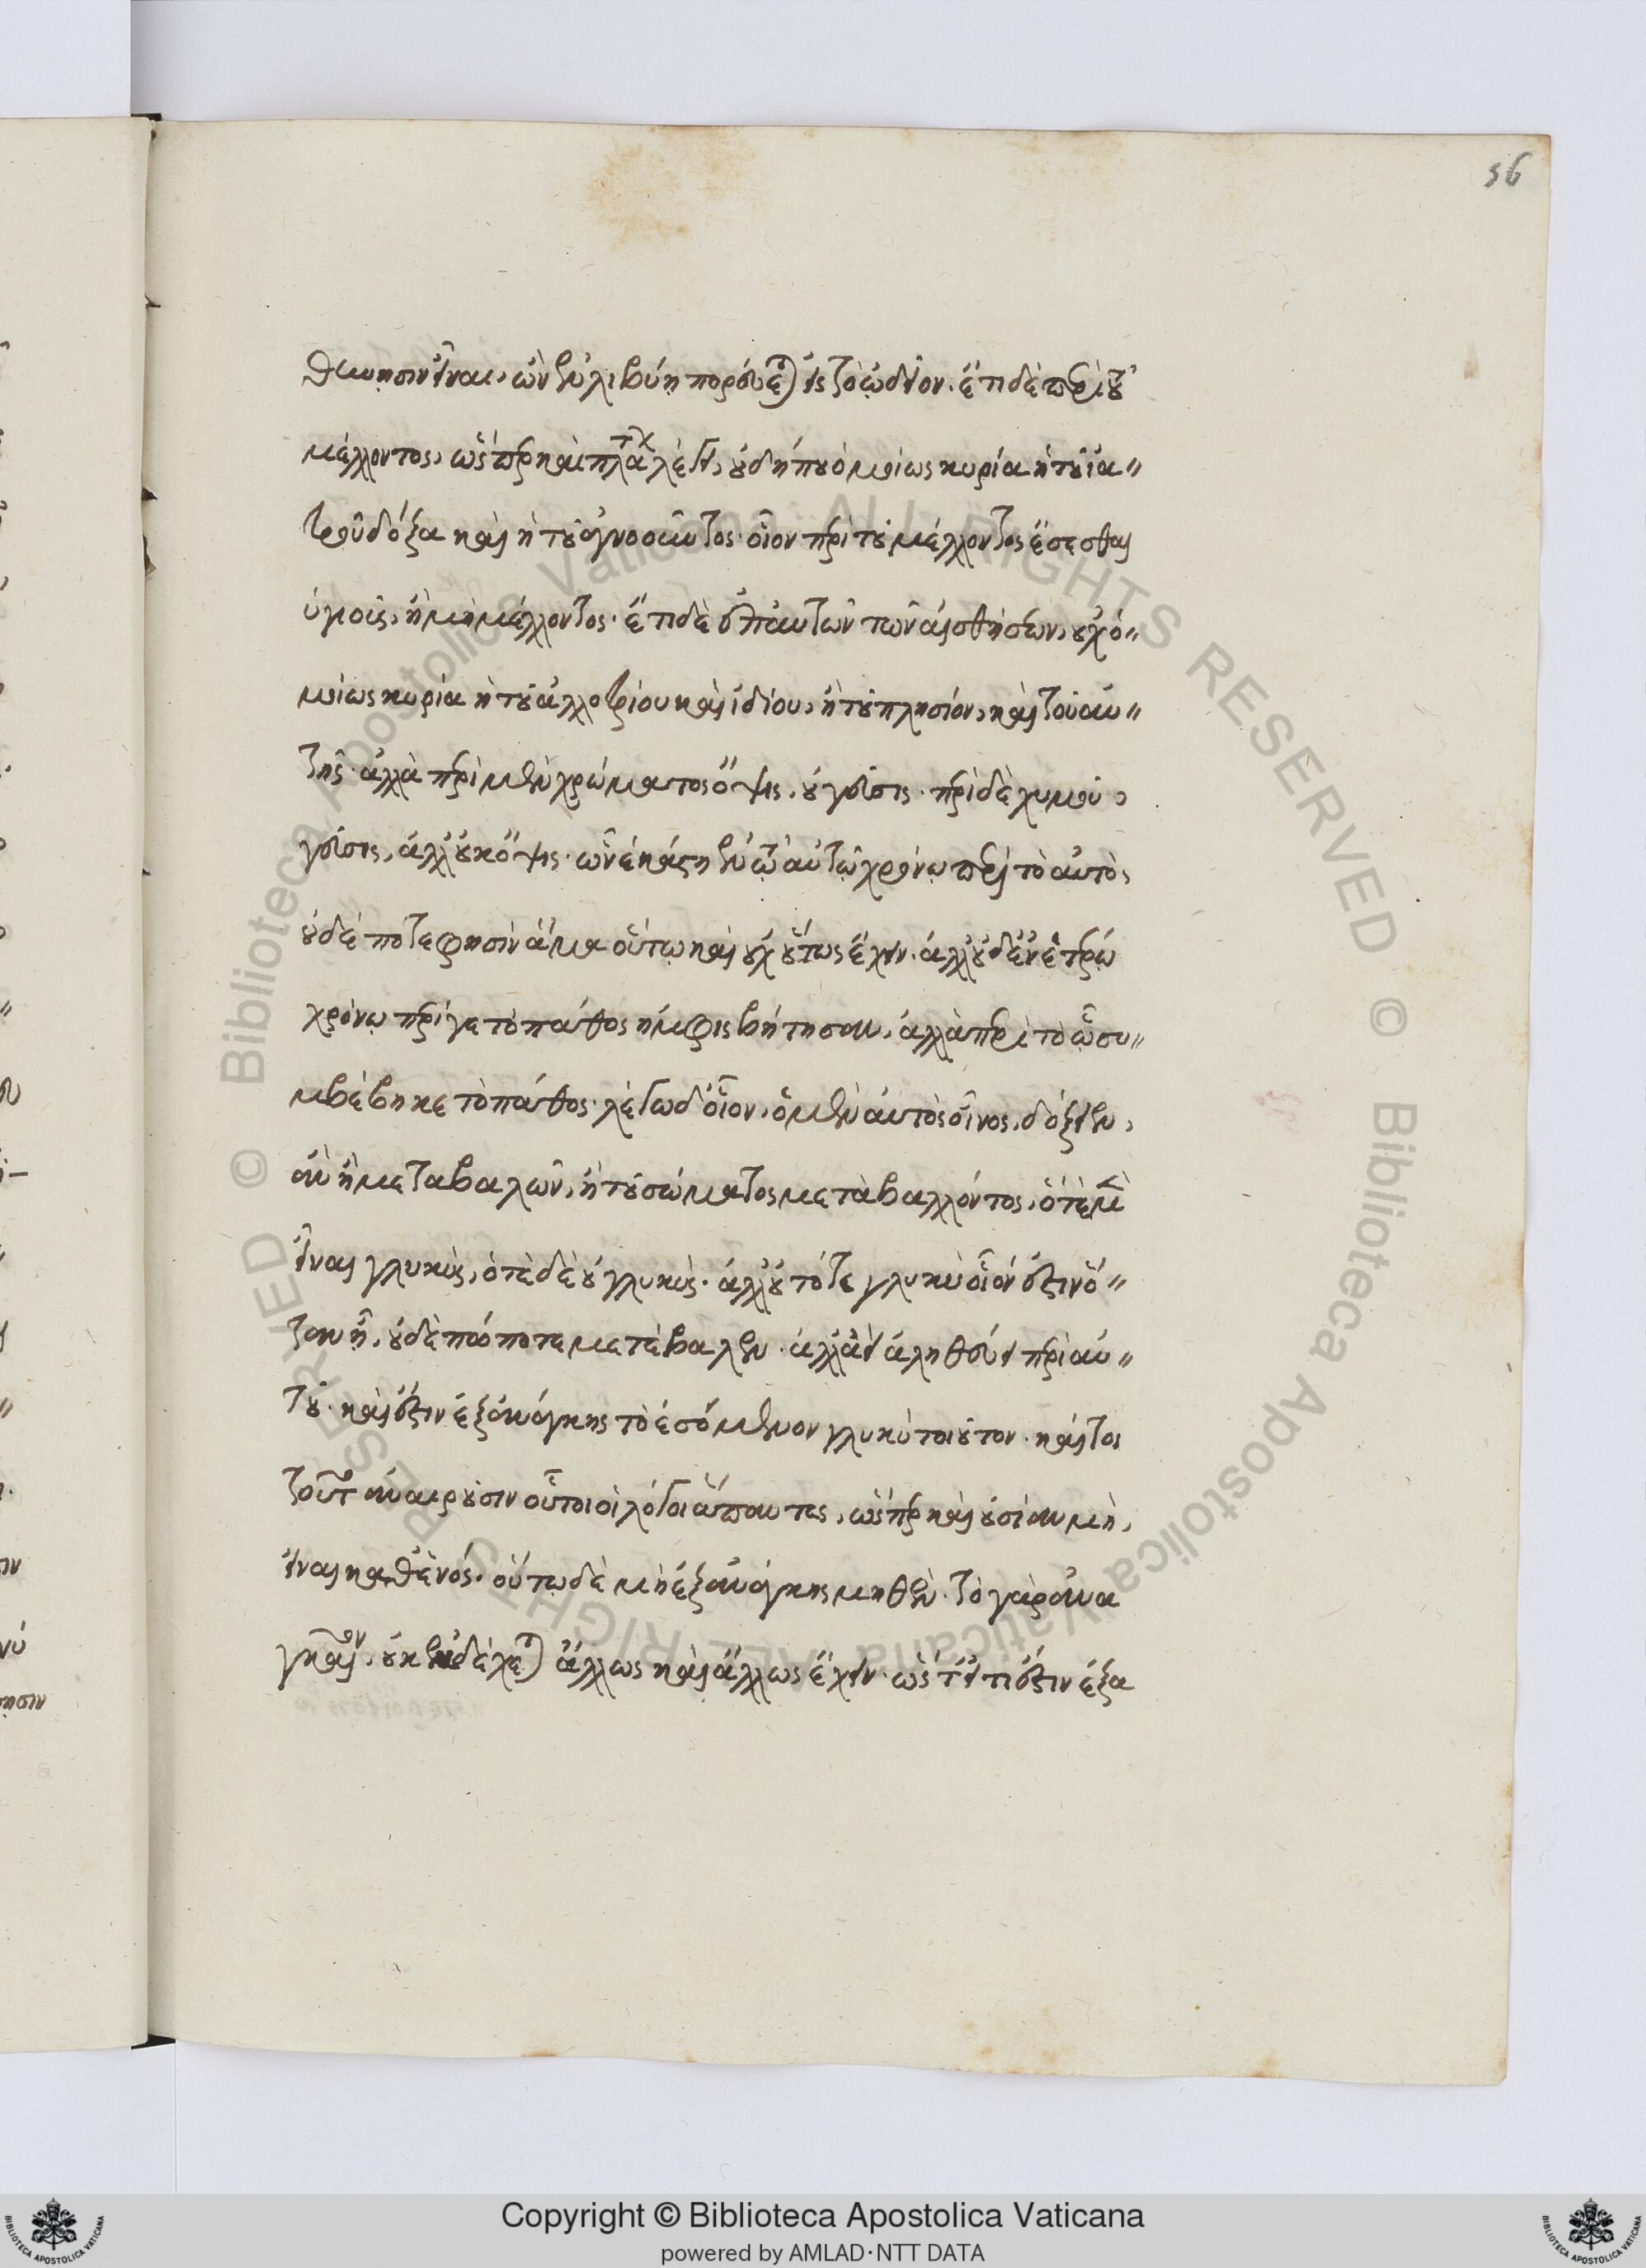 36
θήνησιν εἶναι, ὢν ἐν λιβύῃ πορεύεται εἰς τὸ ᾠδεῖον. ἔτι δὲ περὶ τοῦ
μέλλοντος, ὥσπερ καὶ πλάτων λέγει, οὐ δήπου ὁμοίως κυρία ἡ τοῦ ἰα
τροῦ δόξα καὶ ἡ τοῦ ἀγνοοῦντος· οἷον περὶ τοῦ μέλλοντος ἔσεσθαι
ὑγιοῦς, ἢ μὴ μέλλοντος. ἔτι δὲ ἐπ' αὐτῶν τῶν αἰσθήσεων, οὐχ ὁ
μοίως κυρία ἡ τοῦ ἀλλοτρίου καὶ ἰδίου, ἢ τοῦ πλησίον, καὶ τοῦ αὐ
τῆς. ἀλλὰ περὶ μὲν χρώματος ὄψις, οὐ γεῦσις. περὶ δὲ χυμοῦ,
γεῦσις, ἀλλ' οὐκ ὄψις. ὧν ἑκάστη ἐν τῷ αὐτῷ χρόνῳ περὶ τὸ αὐτὸ,
οὐδέποτε φησὶν ἅμα οὕτω καὶ οὐχ οὕτως ἔχειν. ἀλλ' οὐδ' ἐν ἑτέρῳ
χρόνῳ περί γε τὸ πάθος ἠμφισβήτησαν, ἀλλὰ περὶ τὸ ᾧ συ
μβέβηκε τὸ πάθος. λέγω δ' οἷον, ὁ μὲν αὐτὸς οἶνος, δόξειεν,
ἂν ἢ μεταβαλὼν, ἢ τοῦ σώματος μεταβαλλόντος, ὁτὲ μὲν
εἶναι γλυκὺς, ὁτὲ δὲ οὐ γλυκύς. ἀλλ' οὐ τό τε γλυκὺ οἷόν ἐστιν ὅ
ταν ᾖ, οὐδεπώποτε μετέβαλεν. ἀλλ' ἀεὶ ἀληθεύει περὶ αὐ
τοῦ. καὶ ἔστιν ἐξ ἀνάγκης τὸ ἐσόμενον γλυκὺ τοιοῦτον. καίτοι
τοῦτο ἀναιροῦσιν οὗτοι οἱ λόγοι ἅπαντες, ὥσπερ καὶ οὐσίαν μὴ,
εἶναι καθενός. οὕτω δὲ μὴ ἐξ ἀνάγκης μηθέν. τὸ γὰρ ἀνα
γκαῖον, οὐκ ἐνδέχεται ἄλλως καὶ ἄλλως ἔχειν. ὥστ' εἴ τι ἔστιν ἐξ α